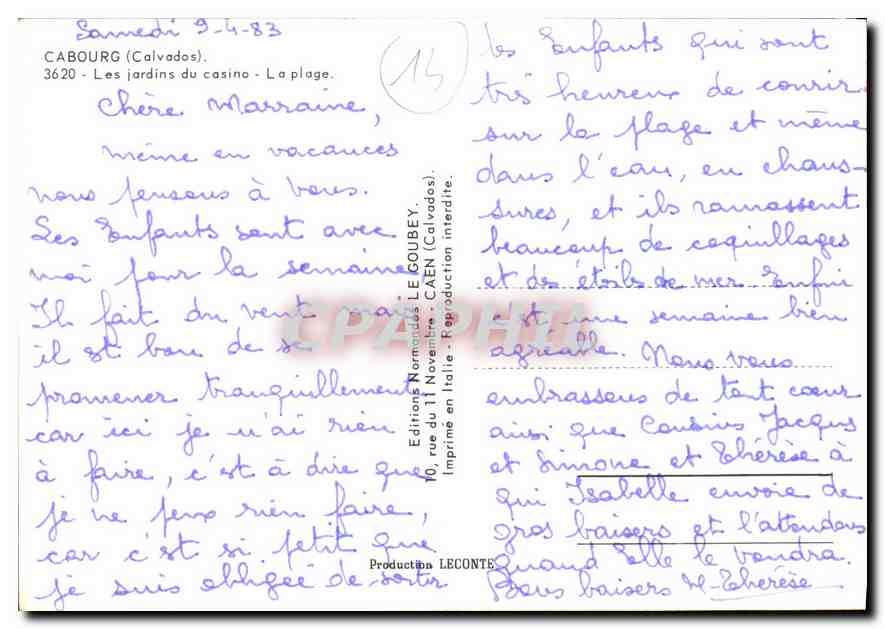 Samedi 9-4-83
CABOURG (Calvados).
3620 - Les jardins du casino - La plage.
13
Chère Marraine,
même en vacances
nous pensons à vous.
Les Enfants sont avec
moi pour la semaine,
Il fait du vent mais
il est bon de se
promener tranquillement
car ici je n'ai rien
à faire, c'est à dire que
je ne peux rien faire,
car c'est si petit que
je suis obligée de sortir
Editions Normandes LE GOUBEY.
10, rue du 11 Novembre - CAEN (Calvados).
Imprimé en Italie - Reproduction interdite.
CPAPHIL
Production LECONTE
les Enfants qui sont
très heureux de courir
sur la plage et même
dans l'eau, en chaus-
sures, et ils ramassent
beaucoup de coquillages
et des étoiles de mer Enfin
c'est une semaine bien
agréable. Nous vous
embrassons de tout cœur
ainsi que Cousins Jacques
et Simone et Thérèse à
qui Isabelle envoie de
gros baisers et l'attendons
quand Elle le voudra.
Bons baisers M-Thérèse